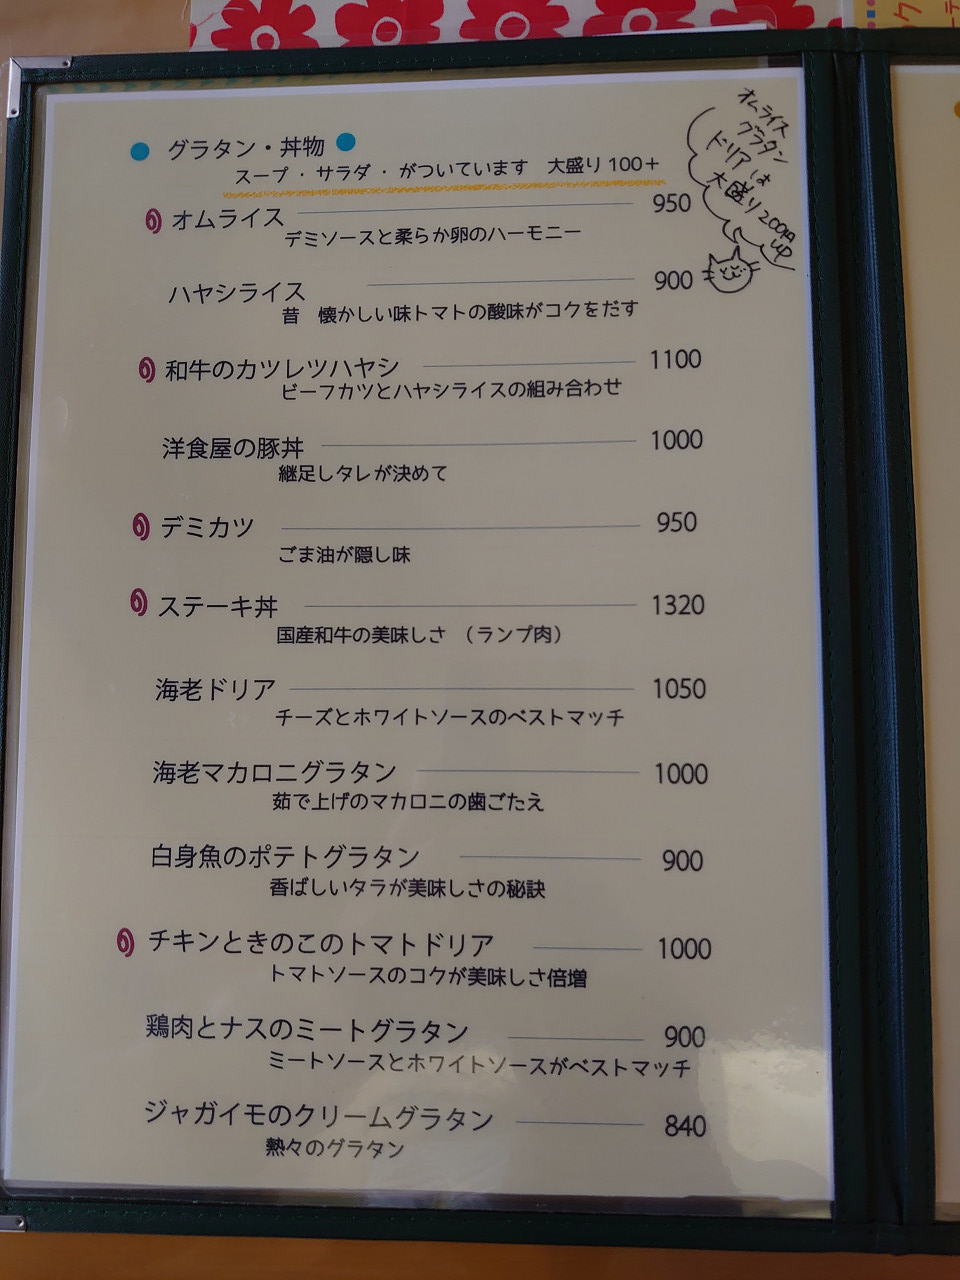 グラタン・丼物
スープ・サラダ・がついています 大盛り100+
オムライス 950
デミソースと柔らか卵のハーモニー
ハヤシライス 900
昔 懐かしい味トマトの酸味がコクをだす
和牛のカツレツハヤシ 1100
ビーフカツとハヤシライスの組み合わせ
洋食屋の豚丼 1000
継足しタレが決めて
デミカツ 950
ごま油が隠し味
ステーキ丼 1320
国産和牛の美味しさ (ランプ肉)
海老ドリア 1050
チーズとホワイトソースのベストマッチ
海老マカロニグラタン 1000
茹で上げのマカロニの歯ごたえ
白身魚のポテトグラタン 900
香ばしいタラが美味しさの秘訣
チキンときのこのトマトドリア 1000
トマトソースのコクが美味しさ倍増
鶏肉とナスのミートグラタン 900
ミートソースとホワイトソースがベストマッチ
ジャガイモのクリームグラタン 840
熱々のグラタン
オムライス
グラタン
ドリアは
大盛り200円
UP